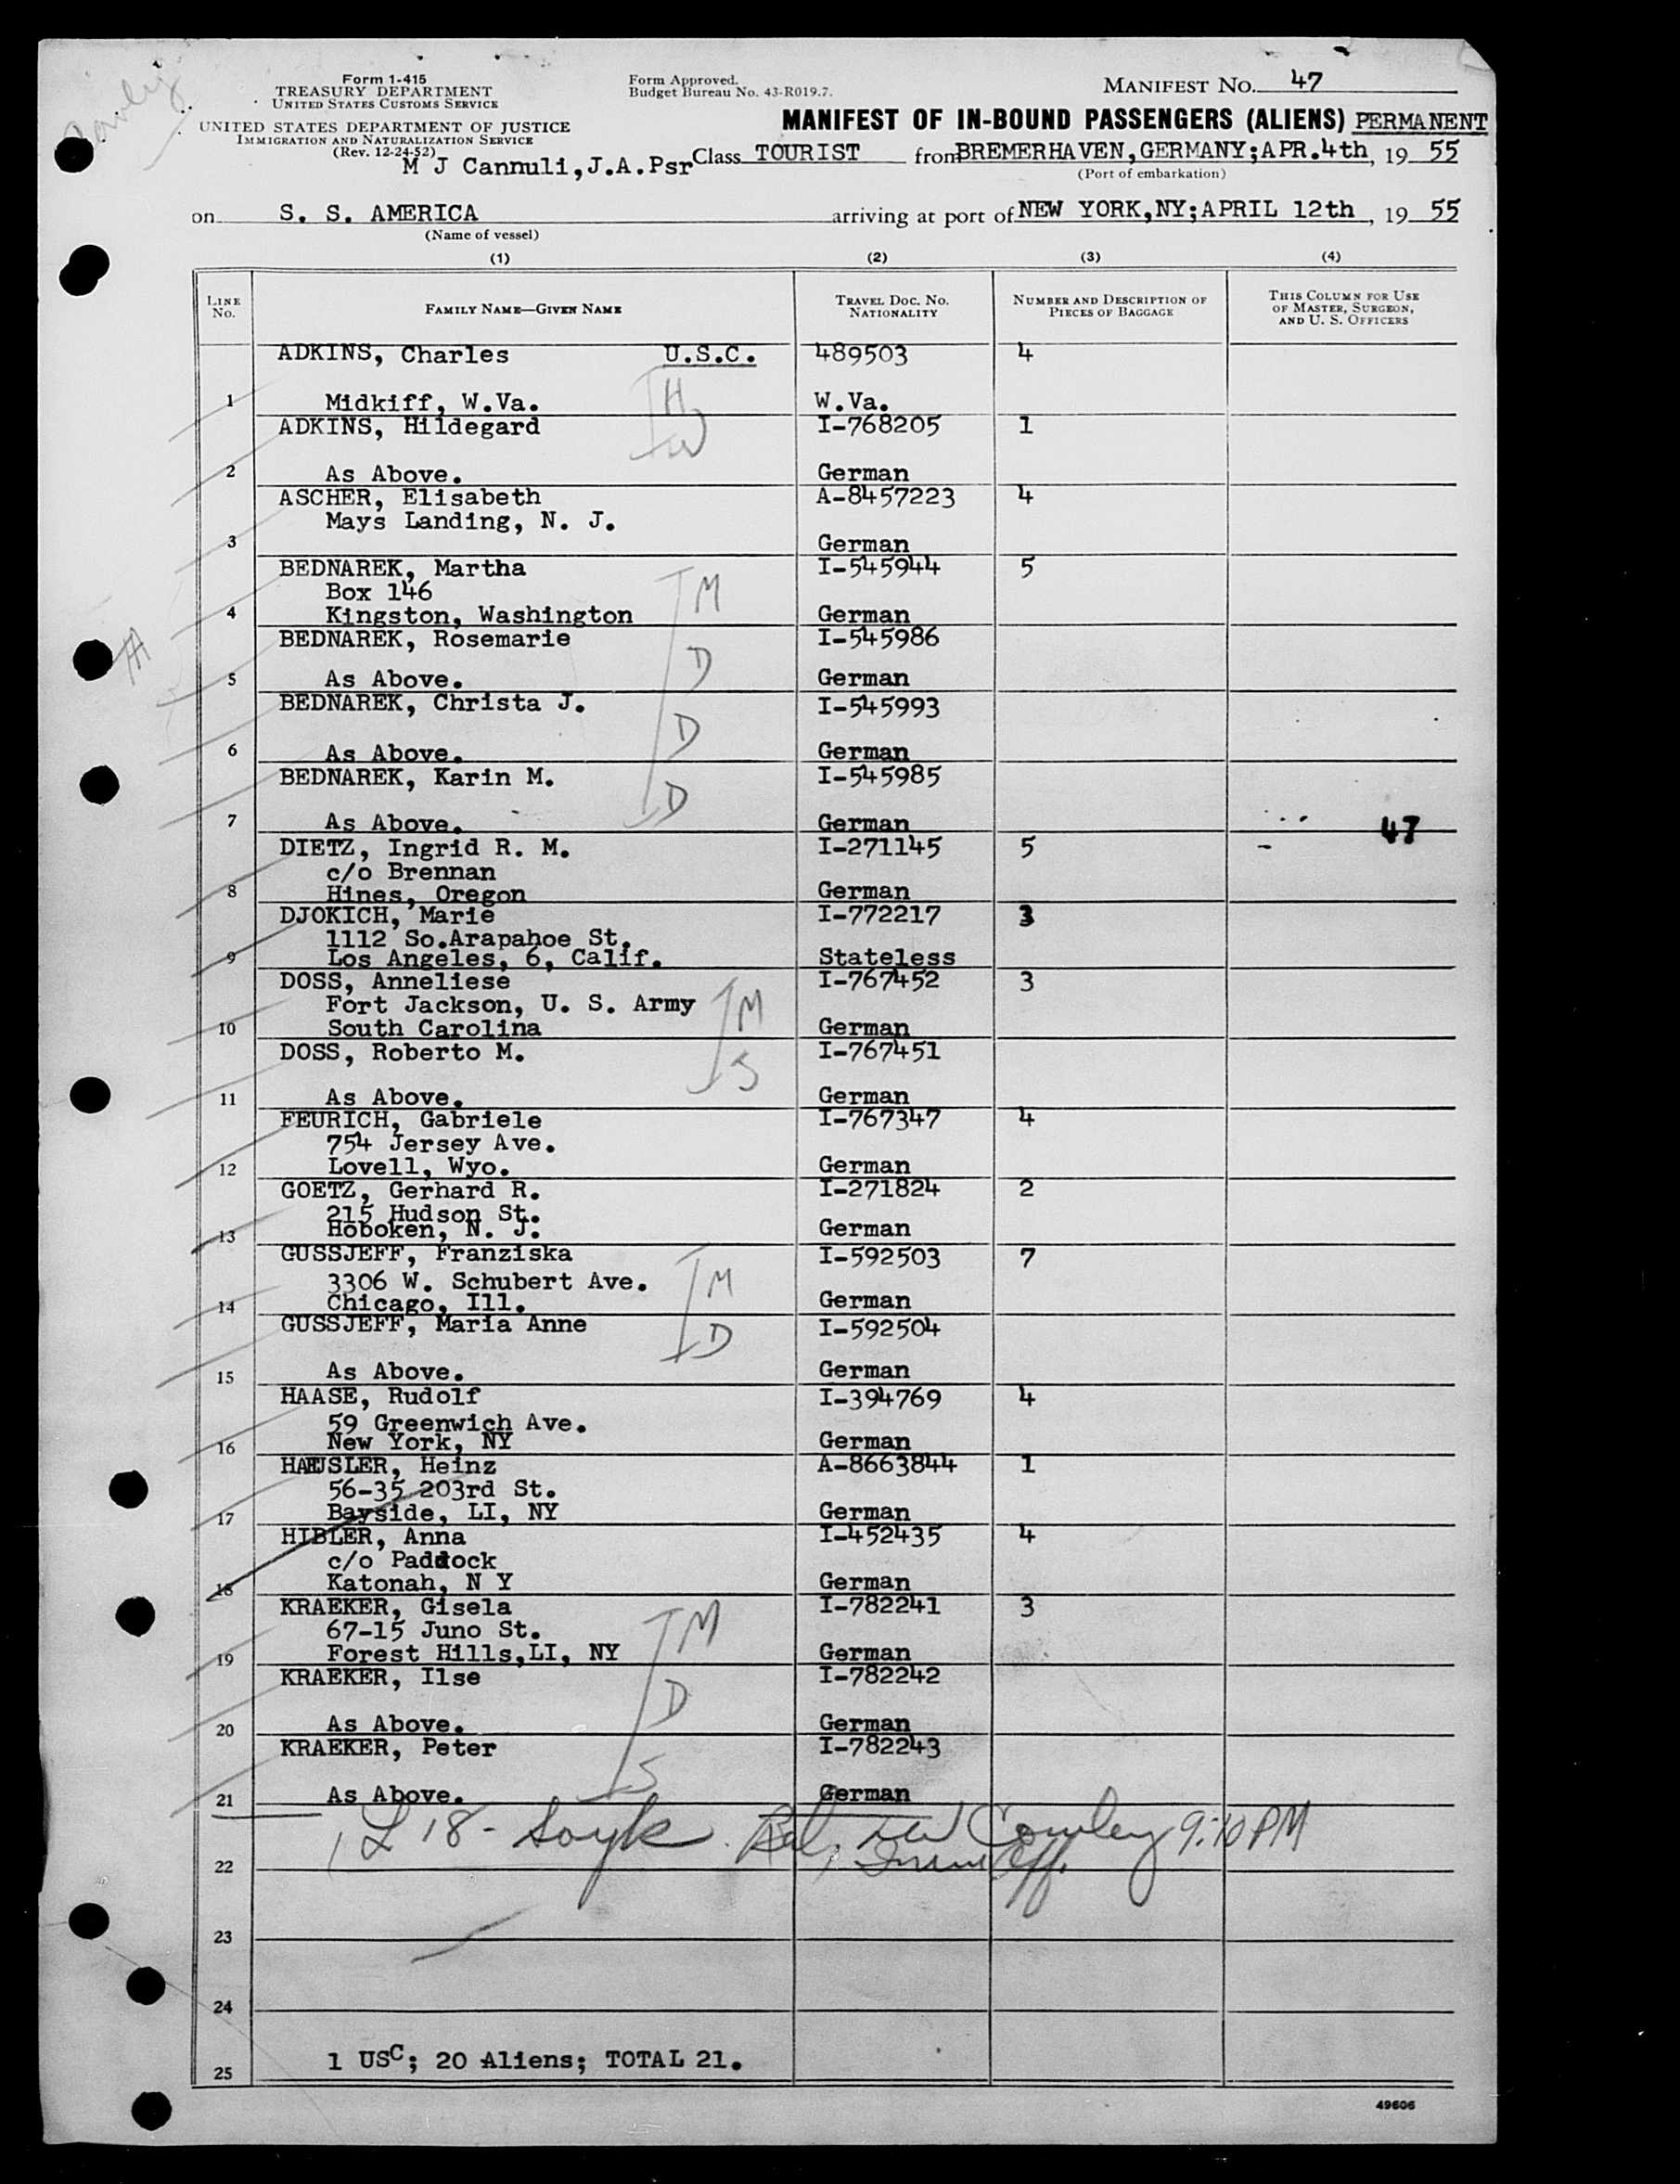 Form 1-415
TREASURY DEPARTMENT
UNITED STATES CUSTOMS SERVICE
UNITED STATES DEPARTMENT OF JUSTICE
IMMIGRATION AND NATURALIZATION SERVICE
(Rev. 12-24-52)
Form Approved.
Budget Bureau No. 43-R019.7.
MANIFEST NO. 47
MANIFEST OF IN-BOUND PASSENGERS (ALIENS) PERMANENT
M J Cannuli, J.A.Psr Class TOURIST from BREMERHAVEN, GERMANY; APR. 4th, 19 55
(Port of embarkation)
on S. S. AMERICA arriving at port of NEW YORK, NY; APRIL 12th, 19 55
(Name of vessel)
(1) (2) (3) (4)
LINE NO. FAMILY NAME—GIVEN NAME TRAVEL DOC. NO. NATIONALITY NUMBER AND DESCRIPTION OF PIECES OF BAGGAGE THIS COLUMN FOR USE OF MASTER, SURGEON, AND U. S. OFFICERS
ADKINS, Charles U.S.C. 489503 4
H
1 Midkiff, W.Va. W.Va.
ADKINS, Hildegard I-768205 1
W
2 As Above. German
ASCHER, Elisabeth A-8457223 4
Mays Landing, N. J.
3 German
BEDNAREK, Martha I-545944 5
Box 146 M
4 Kingston, Washington German
BEDNAREK, Rosemarie I-545986
D
5 As Above. German
BEDNAREK, Christa J. I-545993
D
6 As Above. German
BEDNAREK, Karin M. I-545985
D
7 As Above. German 47
DIETZ, Ingrid R. M. I-271145 5
c/o Brennan
8 Hines, Oregon German
DJOKICH, Marie I-772217 3
1112 So.Arapahoe St.
9 Los Angeles, 6, Calif. Stateless
DOSS, Anneliese I-767452 3
Fort Jackson, U. S. Army M
10 South Carolina German
DOSS, Roberto M. I-767451
S
11 As Above. German
FEURICH, Gabriele I-767347 4
754 Jersey Ave.
12 Lovell, Wyo. German
GOETZ, Gerhard R. I-271824 2
215 Hudson St.
13 Hoboken, N. J. German
GUSSJEFF, Franziska I-592503 7
3306 W. Schubert Ave. M
14 Chicago, Ill. German
GUSSJEFF, Maria Anne I-592504
D
15 As Above. German
HAASE, Rudolf I-394769 4
59 Greenwich Ave.
16 New York, NY German
HAEUSLER, Heinz A-8663844 1
56-35 203rd St.
17 Bayside, LI, NY German
HIBLER, Anna I-452435 4
c/o Paddock
18 Katonah, N Y German
KRAEKER, Gisela I-782241 3
67-15 Juno St. M
19 Forest Hills,LI, NY German
KRAEKER, Ilse I-782242
D
20 As Above. German
KRAEKER, Peter I-782243
S
21 As Above. German
L 18 - Cowley 9:10 PM
22 Imm Off.
23
24
25 1 USC; 20 Aliens; TOTAL 21.
49606